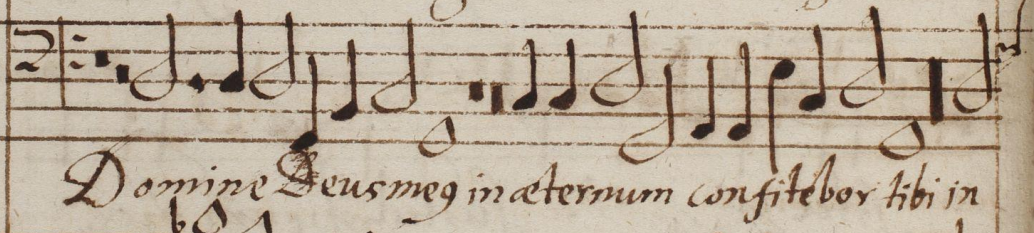 Domine Deus meꝰ in æternum confitebor tibi in